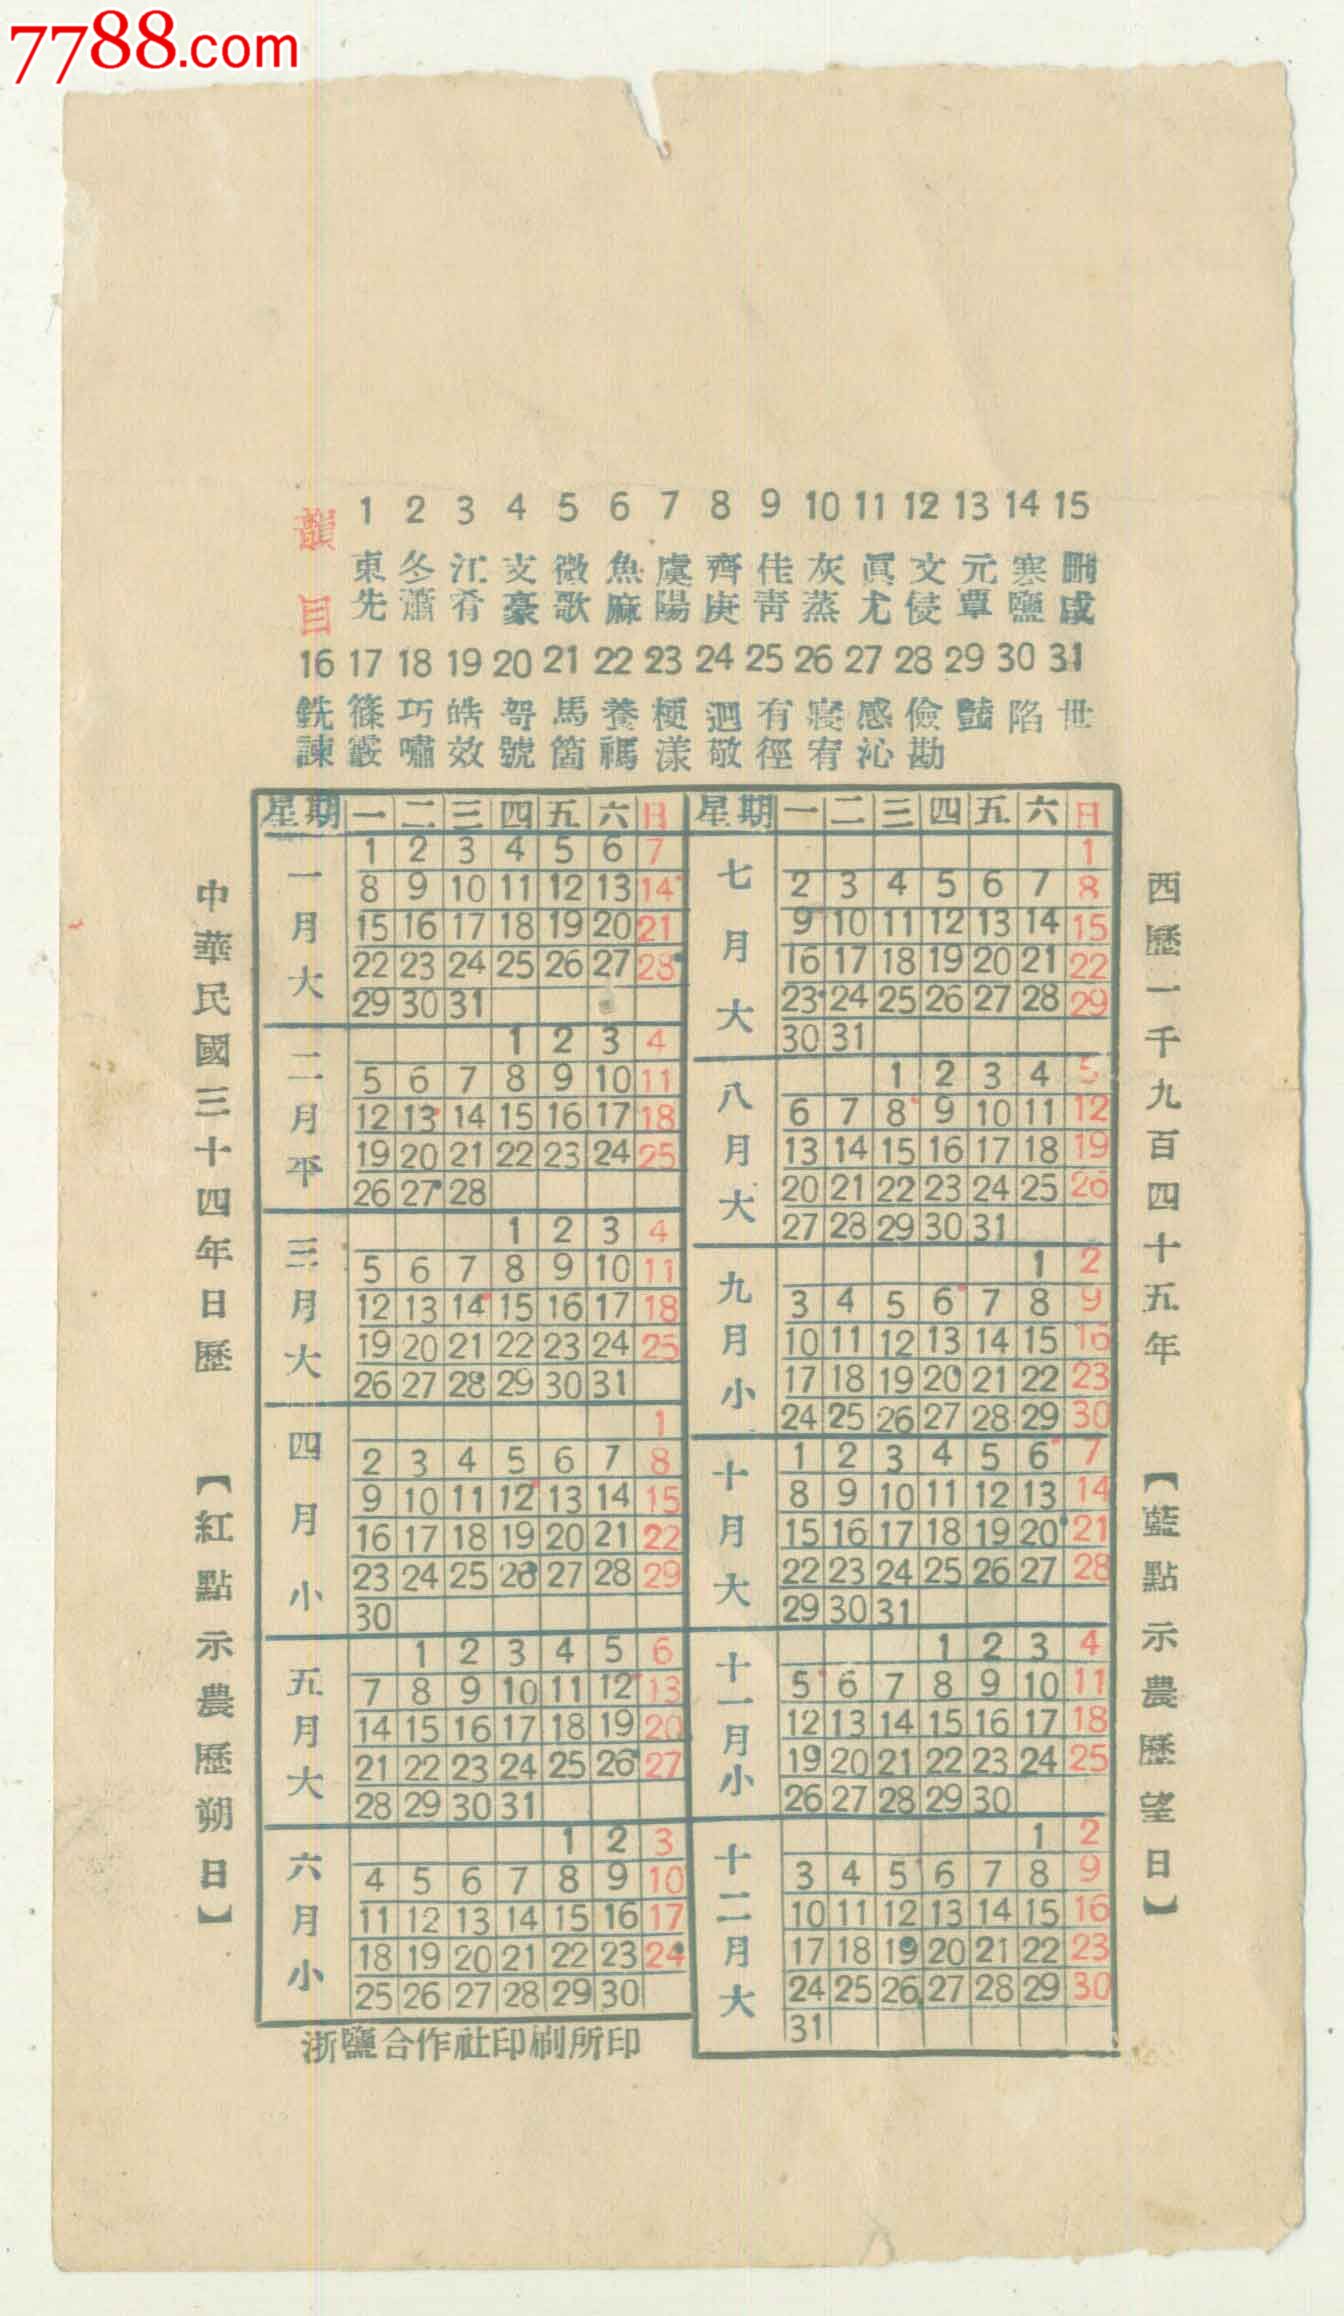 7788.com
韻目
1 2 3 4 5 6 7 8 9 10 11 12 13 14 15
東 冬 江 支 微 魚 虞 齊 佳 灰 眞 文 元 寒 刪
先 蕭 肴 豪 歌 麻 陽 庚 青 蒸 尤 侵 覃 鹽 咸
16 17 18 19 20 21 22 23 24 25 26 27 28 29 30 31
銑 篠 巧 皓 哿 馬 養 梗 迥 有 寢 感 儉 豔 陷 世
諫 霰 嘯 效 號 箇 禡 漾 敬 徑 宥 沁 勘
中華民國三十四年日歷
【紅點示農歷朔日】
星期 一 二 三 四 五 六 日
一月大
1 2 3 4 5 6 7
8 9 10 11 12 13 14
15 16 17 18 19 20 21
22 23 24 25 26 27 28
29 30 31
二月平
1 2 3 4
5 6 7 8 9 10 11
12 13 14 15 16 17 18
19 20 21 22 23 24 25
26 27 28
三月大
1 2 3 4
5 6 7 8 9 10 11
12 13 14 15 16 17 18
19 20 21 22 23 24 25
26 27 28 29 30 31
四月小
1
2 3 4 5 6 7 8
9 10 11 12 13 14 15
16 17 18 19 20 21 22
23 24 25 26 27 28 29
30
五月大
1 2 3 4 5 6
7 8 9 10 11 12 13
14 15 16 17 18 19 20
21 22 23 24 25 26 27
28 29 30 31
六月小
1 2 3
4 5 6 7 8 9 10
11 12 13 14 15 16 17
18 19 20 21 22 23 24
25 26 27 28 29 30
浙鹽合作社印刷所印
星期 一 二 三 四 五 六 日
七月大
1
2 3 4 5 6 7 8
9 10 11 12 13 14 15
16 17 18 19 20 21 22
23 24 25 26 27 28 29
30 31
八月大
1 2 3 4 5
6 7 8 9 10 11 12
13 14 15 16 17 18 19
20 21 22 23 24 25 26
27 28 29 30 31
九月小
1 2
3 4 5 6 7 8 9
10 11 12 13 14 15 16
17 18 19 20 21 22 23
24 25 26 27 28 29 30
十月大
1 2 3 4 5 6 7
8 9 10 11 12 13 14
15 16 17 18 19 20 21
22 23 24 25 26 27 28
29 30 31
十一月小
1 2 3 4
5 6 7 8 9 10 11
12 13 14 15 16 17 18
19 20 21 22 23 24 25
26 27 28 29 30
十二月大
1 2
3 4 5 6 7 8 9
10 11 12 13 14 15 16
17 18 19 20 21 22 23
24 25 26 27 28 29 30
31
西歷一千九百四十五年
【藍點示農歷望日】